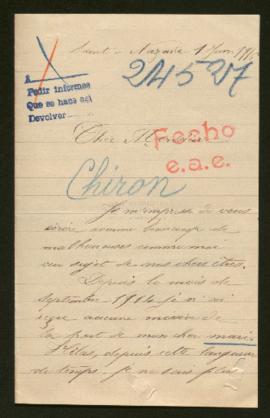 Saint-Nazaire 1 Juin 191
A
Pedir informes
Que se hace así
Devolver
24527
Cher Monsieur
Fecho
e.a.e.
Chiron
Je m'empresse de vous
écrire comme beaucoup de
malheureuses comme moi
au sujet de nos chers êtres.
Depuis le mois de
Septembre 1914 je n'ai
reçu aucune
la part de mon cher mari
Hélas, depuis cette longueur
de temps je ne sais plus